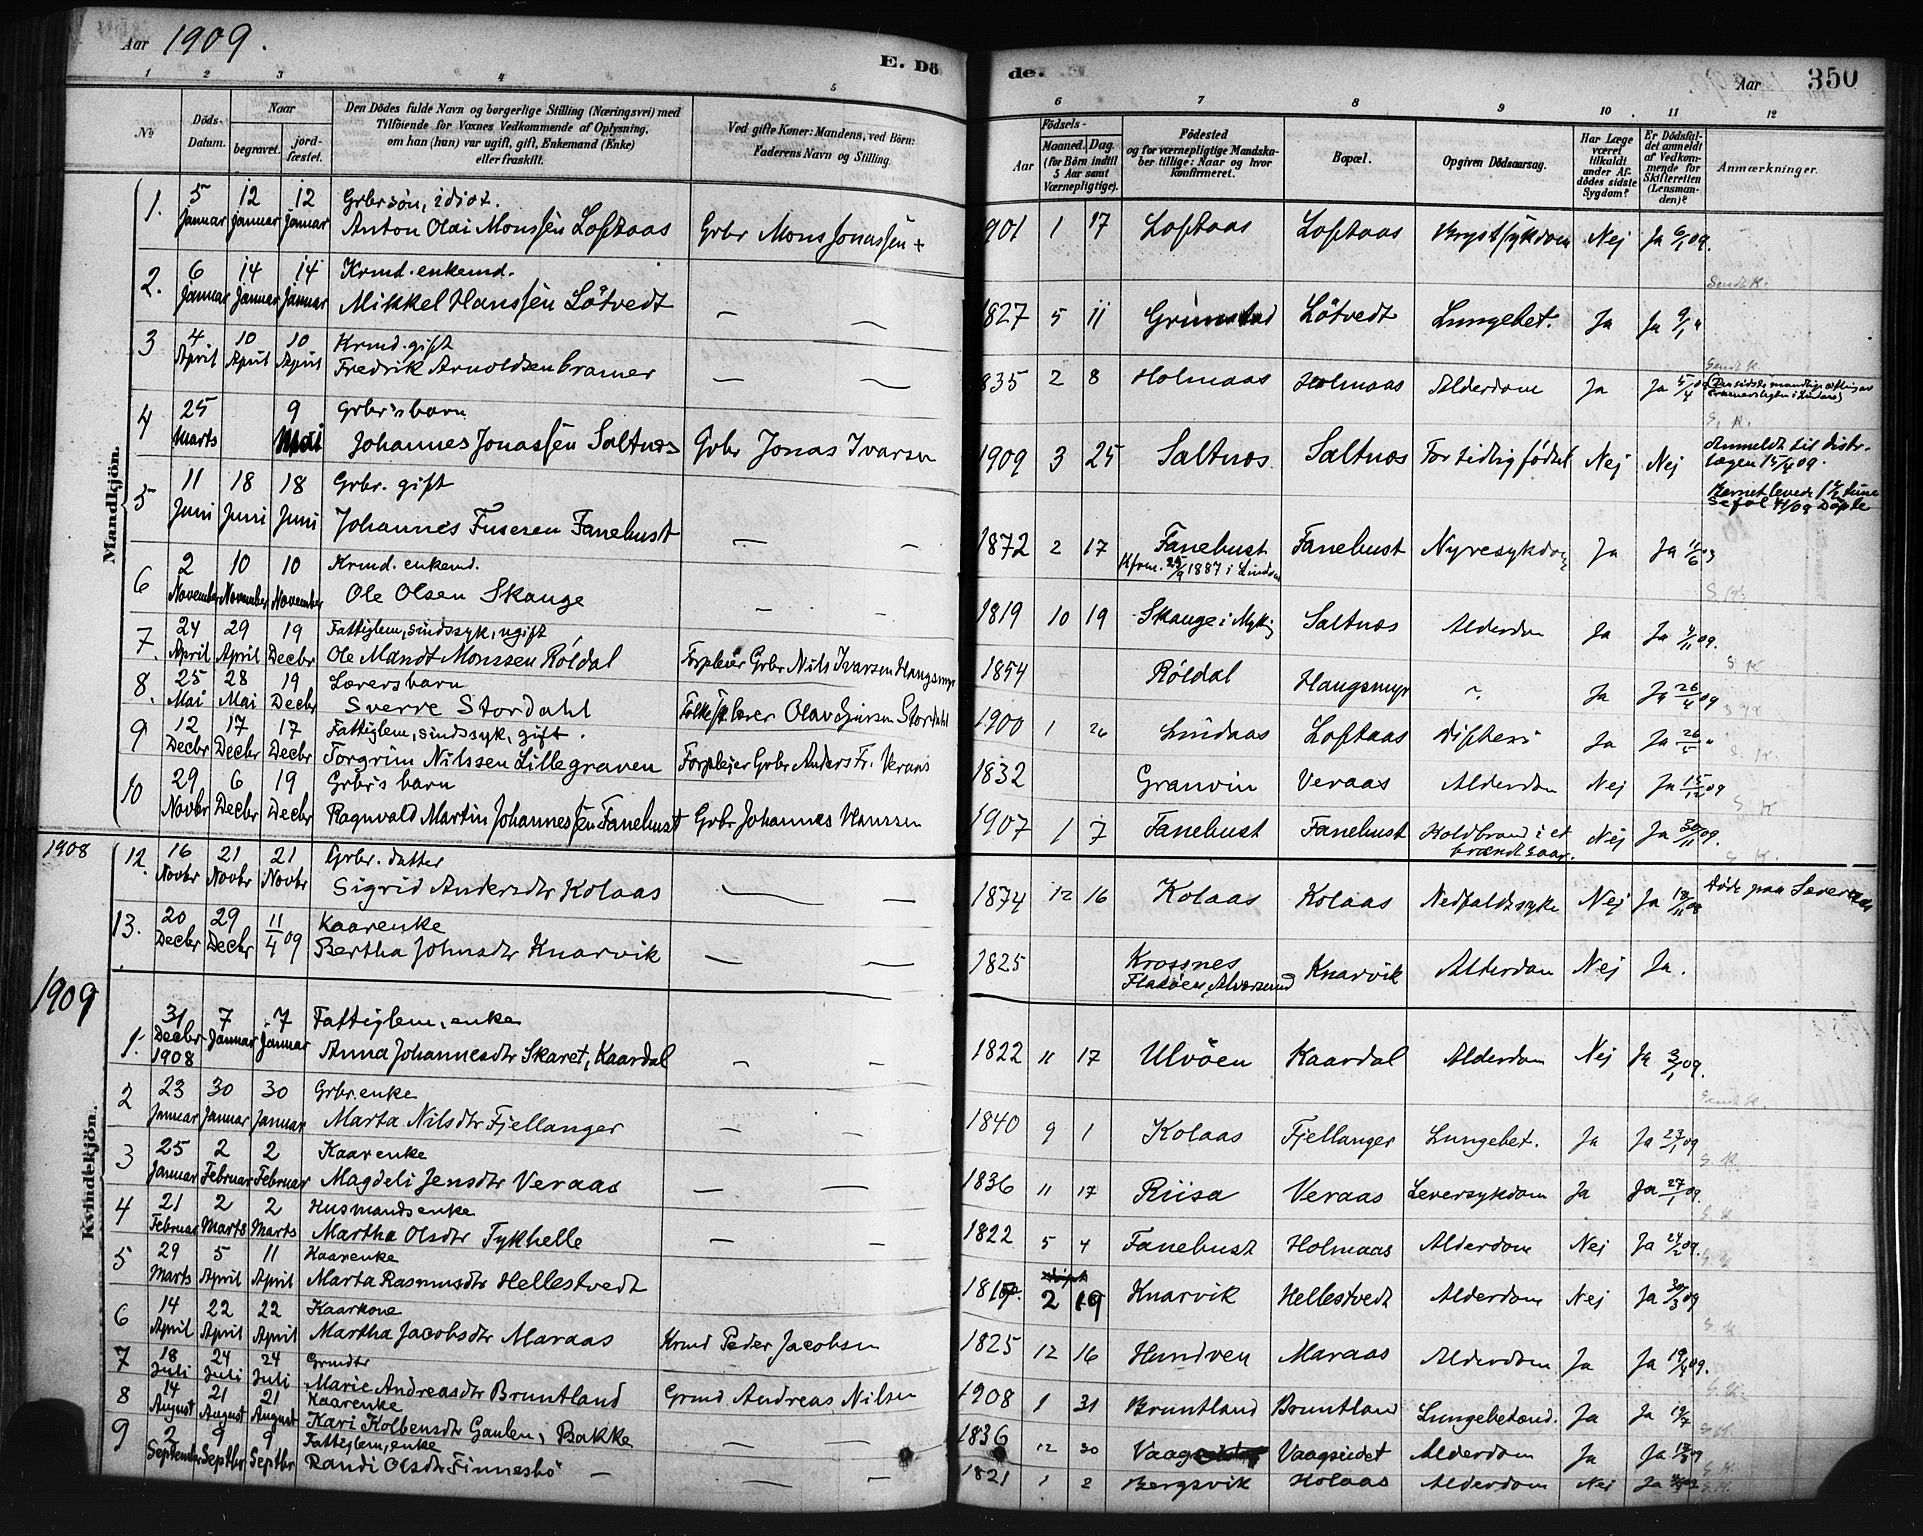 Aar 1909.
E. Dö
de.
Aar 350
1 2 3 4 5
6 7 8 9 10 11 12
No
Döds-Datum.
Naar
begravet.
jord-fæstet.
Den Dödes fulde Navn og borgerlige Stilling (Næringsvei) med
Tilföiende for Voxnes Vedkommende af Oplysning,
om han (hun) var ugift, gift, Enkemand (Enke)
eller fraskilt.
Ved gifte Koner: Mandens, ved Börn:
Faderens Navn og Stilling.
Födsels-
Aar
Maaned. Dag.
(for Börn indtil 5 Aar samt Værnepligtige).
Födested
og for værnepligtige Mandskaber tillige: Naar og hvor konfirmeret.
Bopæl.
Opgiven Dödsaarsag.
Har Læge været tilkaldt under Afdödes sidste Sygdom?
Er Dödsfaldet anmeldt af Vedkommende for Skifteretten (Lensmanden)?
Anmærkninger.
Mandkjön.
1. 5 Januar 12 Januar 12 Januar Grbr søn, idiot.
Anton Olai Monssen Loftaas Grbr Mons Jonassen + 1901 1 17 Loftaas Loftaas Brystsykdom Nej Ja 6/1 09.
Sendt K.
2. 6 Januar 14 Januar 14 Januar Krmd. enkemd.
Mikkel Hanssen Lötvedt — — 1827 5 11 Grimstad Lötvedt Lungebet. Ja Ja 9/1 "
Sendt K.
3 4 April 10 April 10 April Krmd. gift
Fredrik Arnoldsen Cramer — — 1835 2 8 Holmaas Holmaas Alderdom Ja Ja 5/4 09
S. K.
4 25 Marts 9 Mai Grbr's barn
Johannes Jonassen Saltnes Grbr Jonas Ivarsen 1909 3 25 Saltnes Saltnes For tidlig födsel Nej Nej Anmeldt til distr.
lægen 15/4 09.
5 11 Juni 18 Juni 18 Juni Grbr. gift
Johannes Fuseren Fanebust — — 1872 2 17 Fanebust Fanebust Nyresykdom Ja Ja
1887 i Lindaas
S. K.
6 2 November 10 November 10 November Krmd. enkemd.
Ole Olsen Skauge — — 1819 10 19 Skauge i Myking Saltnes Alderdom Ja Ja 4/11 09.
S K
7. 24 April 29 April 19 Decbr Fattiglem, sindssyk, ugift
Ole Mandt Monssen Röldal Forpleier Grbr Nils Ivarsen Haugsmyr 1854 Röldal Haugsmyr ? Ja Ja 26/4 09
8. 25 Mai 28 Mai 19 Decbr Lærers barn
Sverre Stordahl Stordahl 1900 1 26 Lindaas Loftaas Difteri Ja Ja 26/5 "
S. K.
9 12 Decbr 17 Decbr 17 Decbr Fattiglem, sindssyk, gift.
Torgrim Nilssen Lillegraven Forpleier Grbr Anders Fr. Veraas 1832 Granvin Veraas Alderdom Nej Ja 15/12 09
S K
10 29 Novbr 6 Decbr 19 Decbr Grbr's barn
Ragnvald Martin Johannessen Fanebust Grbr Johannes Hanssen 1907 1 7 Fanebust Fanebust Koldbrand i et
brandt saar. Nej Ja 30/11 09.
S K.
1908
12. 16 Novbr 21 Novbr 21 Novbr Grbr. datter
Sigrid Andersdtr Kolaas — — 1874 12 16 Kolaas Kolaas Nedfaldssyke Nej Ja 18/11 08 Döde paa
13. 20 Decbr 29 Decbr 11/4 09 Kaarenke
Bertha Johnsdtr Knarvik — — 1825 Krossnes
Flatöen, Alversund Knarvik Alderdom Nej Ja.
1909
Kvindekjön.
1. 31 Decbr 1908 7 Januar 7 Januar Fattiglem, enke
Anna Johannesdtr Skaret, Kaardal — — 1822 11 17 Ulvöen Kaardal Alderdom Nej Ja 3/1 09.
Sendt K.
2 23 Januar 30 Januar 30 Januar Grbr. enke
Marta Nilsdtr Fjellanger — — 1840 9 1 Kolaas Fjellanger Lungebet. Ja Ja 27/1 09
S. K.
3 25 Januar 2 Februar 2 Februar Kaarenke
Magdeli Jensdtr Veraas — — 1836 11 17 Riisa Veraas Leversykdom Ja Ja 27/1 09.
S. K
4 21 Februar 2 Marts 2 Marts Husmandsenke
Martha Olsdtr Tykhelle — — 1822 5 4 Fanebust Holmaas Alderdom Nej Ja 24/2 09.
S K
5 29 Marts 5 April 11 April Kaarenke
Marta Rasmusdtr Hellestvedt 2 19 Knarvik Hellestvedt Alderdom Nej Ja 30/3 09
S K
6 14 April 22 April 22 April Kaarkone
Martha Jacobsdtr Maraas Krmd Peder Jacobsen 1825 12 16 Hundven Maraas Alderdom Ja Ja 19/4 09.
S. K.
7 18 Juli 24 Juli 24 Juli Grmdtr
Marie Andreasdtr Bruntland Grmd Andreas Nilsen 1908 1 31 Bruntland Bruntland Lungebetænd. Ja Ja 19/7
S K.
8 14 August 21 August 21 August Kaarenke
Kari Kolbensdtr Gaulen, Bakke — — 1836 12 30 Vaag Vaagseidet Alderdom Ja Ja
S K
9 2 September 9 Septbr 9 Septbr Fattiglem, enke
Randi Olsdtr Finnesbö — — 1821 1 2 Bergsvik Kolaas Alderdom Nej Ja
S. K.